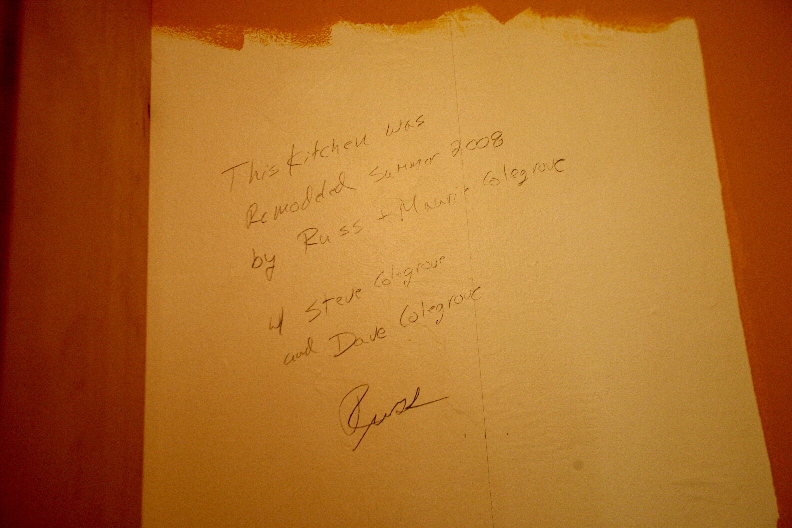 This Kitchen was
Remodded Summer 2008
by Russ + Maurie Colegrove
w/ Steve Colegrove
and Dave Colegrove
Russ